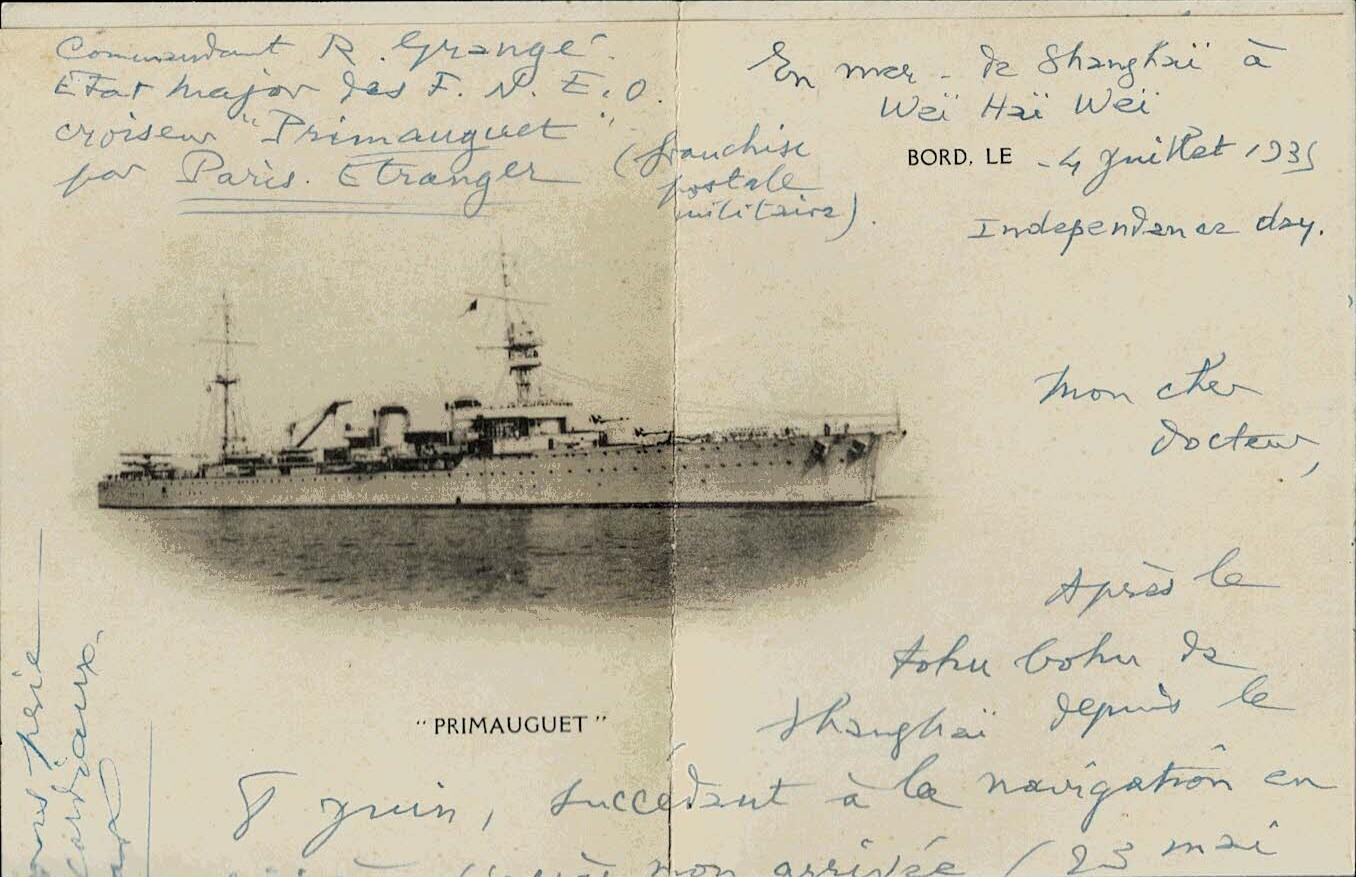 Commandant R. Grangé.
Etat Major des F. N. E. O.
croiseur "Primauguet"
par Paris. Etranger
(franchise
postale
militaire).
En mer - de Shanghaï à
Weï Haï Weï
BORD, LE - 4 Juillet 1935
Independence day.
Mon cher
docteur,
Après le
tohu bohu de
Shanghaï depuis le
"PRIMAUGUET"
8 juin, succédant à la navigation en
mon arrivée (23 mai
vous prie
cordiaux.